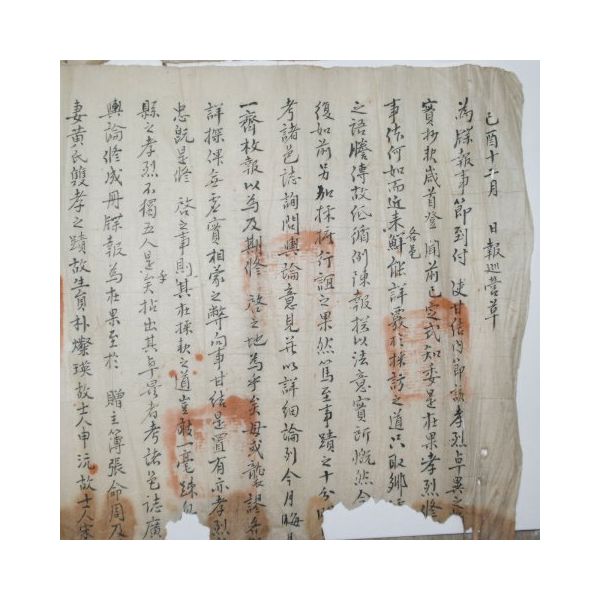 己酉十二月 日報巡營草
為牒報事節到付 使甘結內節該孝烈卓異之
實抄報歲首登 聞前已定式知委是在果孝烈修
事法何如而近來鮮能詳覈於採訪之道只取鄉
各邑
之語謄傳故紙循例陳報揆以法意實所慨然今
復如前另加採摭行誼之果然篤至事蹟之十分
考諸邑誌詢問輿論意見並以詳細論列今月晦
一齊枚報以為及期修 啓之地為乎矣毋或襲謬
詳探俾無虛實相蒙之弊向事甘結是置有亦孝烈
忠既是修 啓之事則其在採報之道豈敢一毫
縣之孝烈不獨五人是乎矣拈出其卓異者考諸邑誌廣
輿論修成冊牒報為在果至於 贈主簿張命周及
妻黃氏雙孝之蹟故生員朴燦瑛故士人申沅故士人宋